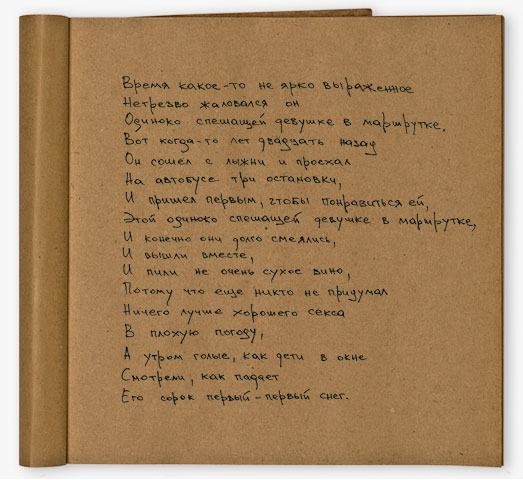 Время какое-то не ярко выраженное
Нетрезво жаловался он
Одиноко спешащей девушке в маршрутке.
Вот когда-то лет двадцать назад
Он сошел с лыжни и проехал
На автобусе три остановки,
И пришел первым, чтобы понравиться ей,
Этой одиноко спешащей девушке в маршрутке,
И конечно они долго смеялись,
И вышли вместе,
И пили не очень сухое вино,
Потому что еще никто не придумал
Ничего лучше хорошего секса
В плохую погоду,
А утром голые, как дети в окне
Смотрели, как падает
Его сорок первый - первый снег.